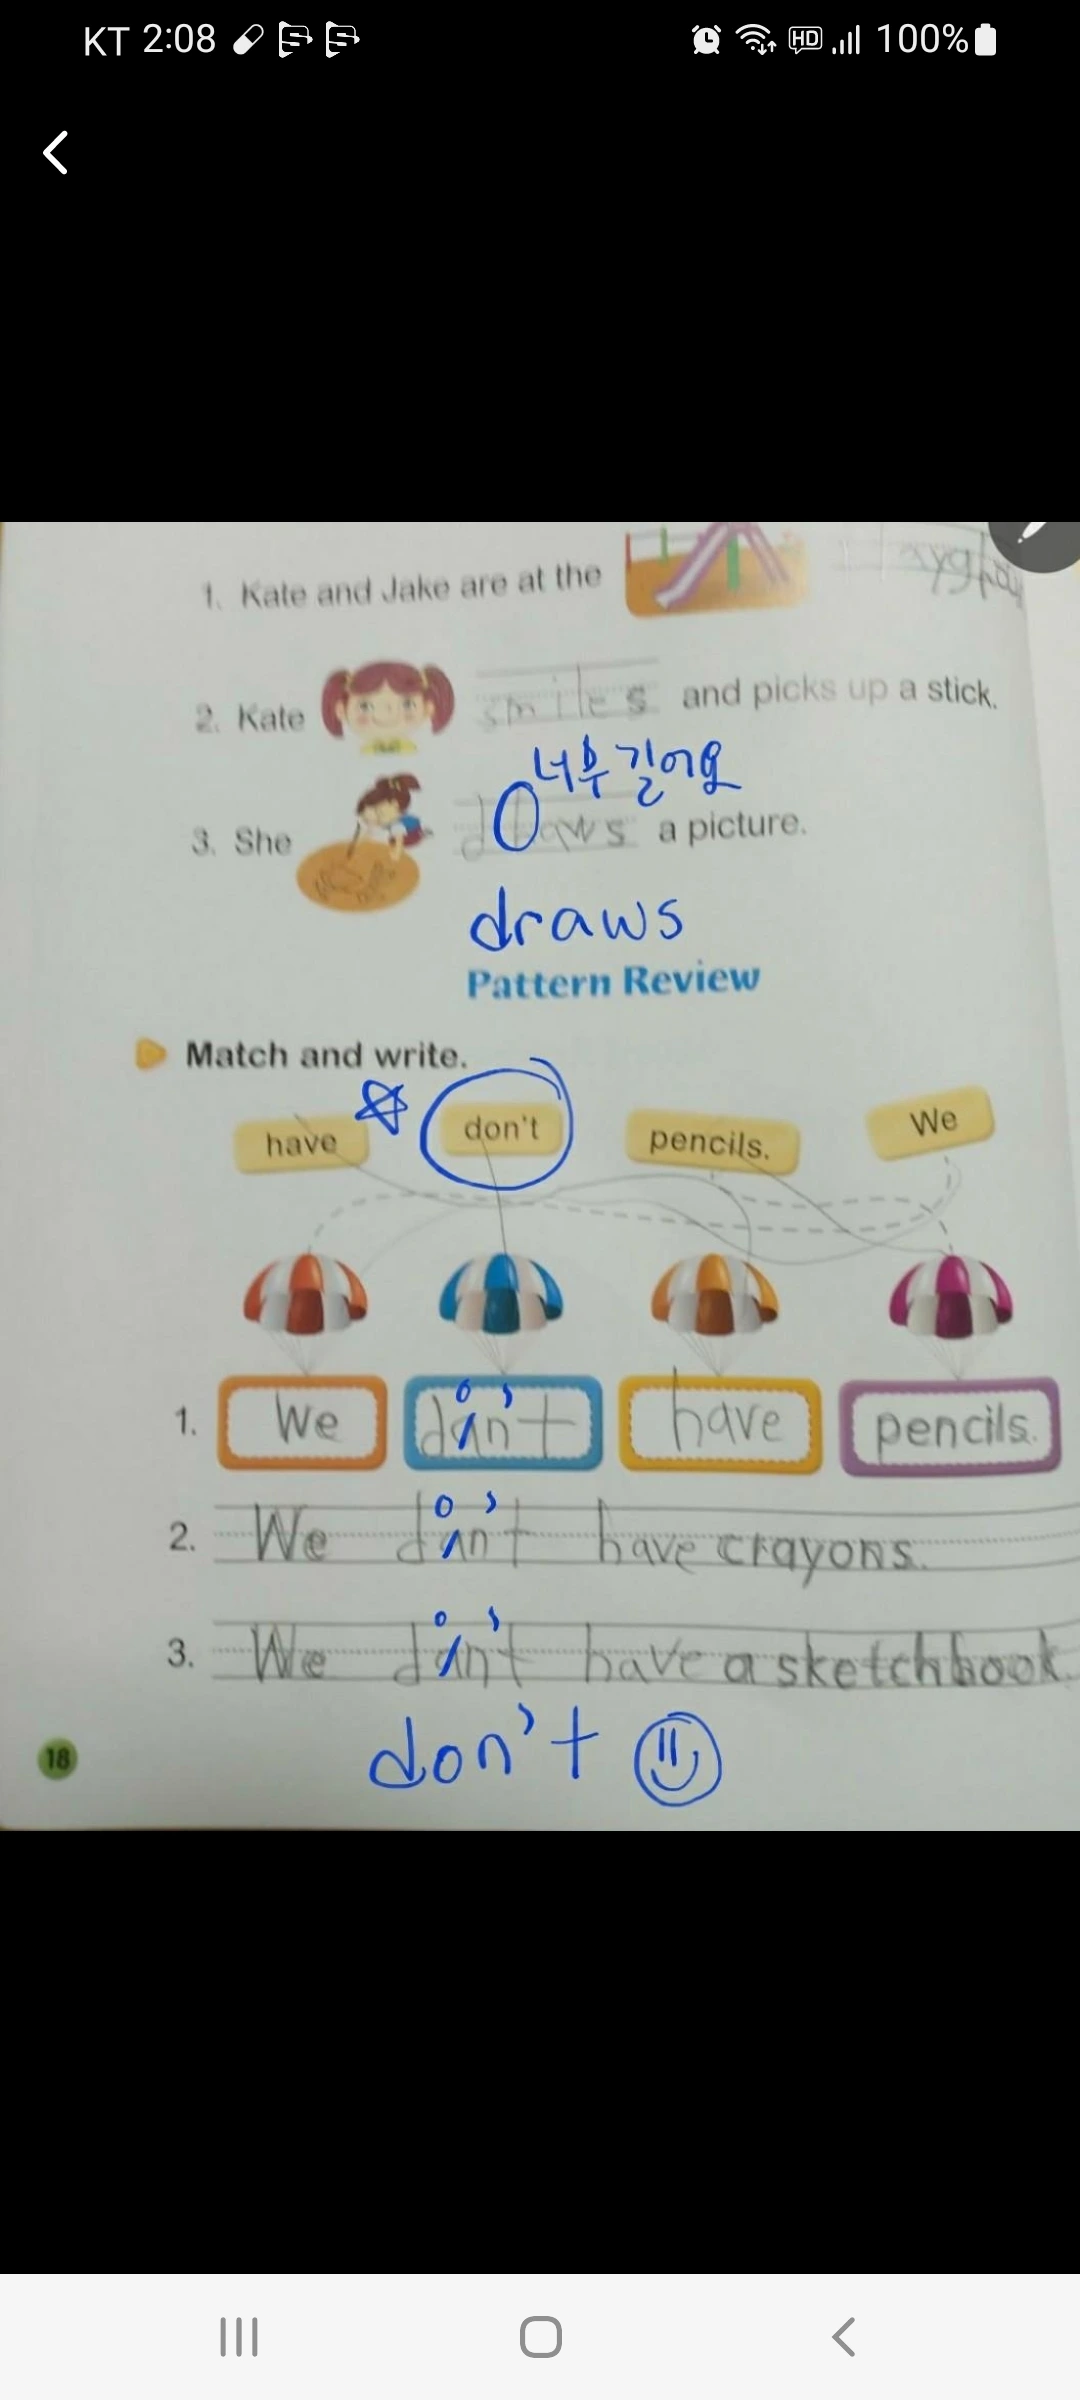 KT 2:08 HD 100%
1. Kate and Jake are at the
2. Kate smiles and picks up a stick.
너무 길어요
3. She draws a picture.
draws
Pattern Review
Match and write.
have don't pencils. We
1. We dan't have pencils.
o '
2. We dan't have crayons.
o '
3. We dan't have a sketchbook.
o '
don't
18